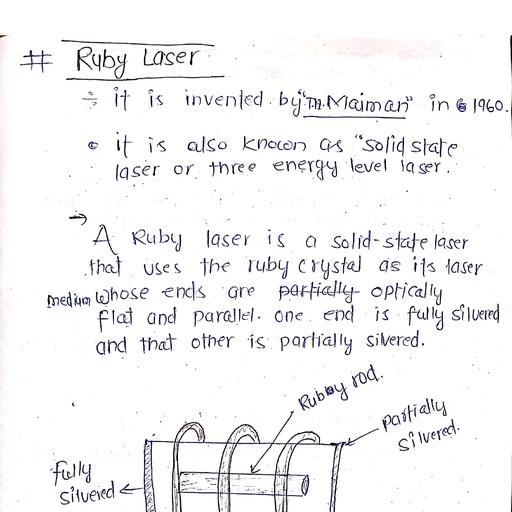 # Ruby Laser
÷ it is invented by "TH.Maiman" in 1960.
• it is also known as "solid state
laser or three energy level laser.
→
A Ruby laser is a solid-state laser
that uses the ruby crystal as its laser
medium whose ends are partially optically
flat and parallel. one end is fully silvered
and that other is partially silvered.
Rubby rod.
Partially
Silvered.
fully
Silvered ←